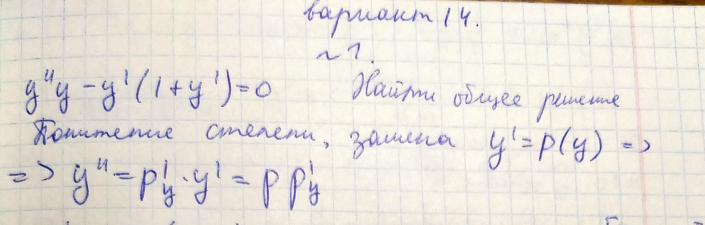 вариант 14.
~ 1.
y''y - y'(1+y')=0 Найти общее решение
Понижение степени, замена y'=p(y) =>
=> y''=p'y·y'=p p'y